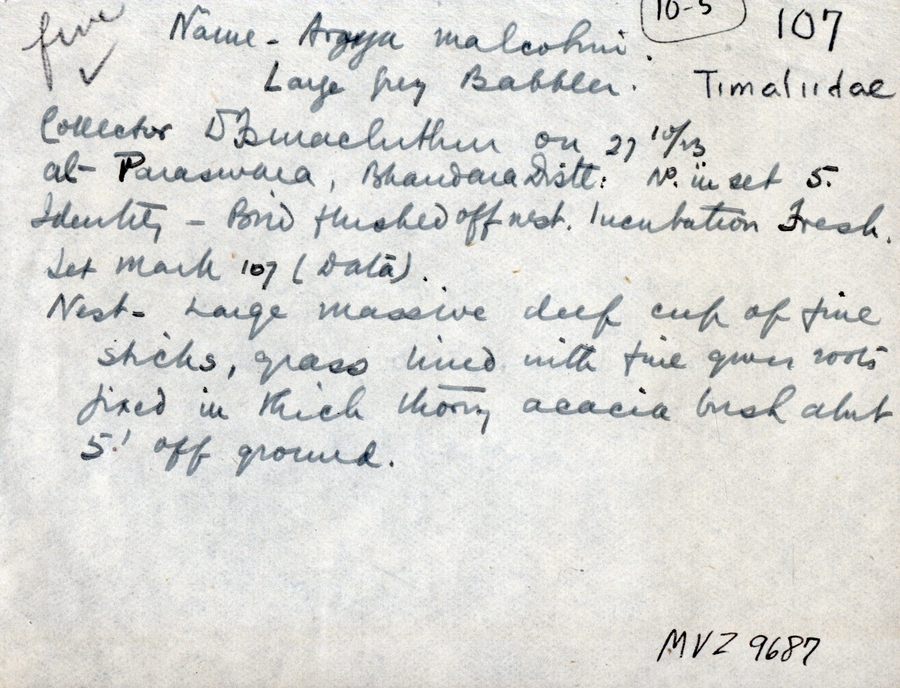 five ✓
10-5
107
Name - Argya malcolmi.
Large grey Babbler.
Timaliidae
Collector on 27 10/23
at Paraswara, Bhandara Distt: No. in set 5.
Identity - Bird flushed off nest. Incubation Fresh.
Set mark 107 (Data).
Nest - Large massive deep cup of fine
sticks, grass lined with fine grass roots
fixed in thick thorny acacia bush about
5' off ground.
MVZ 9687